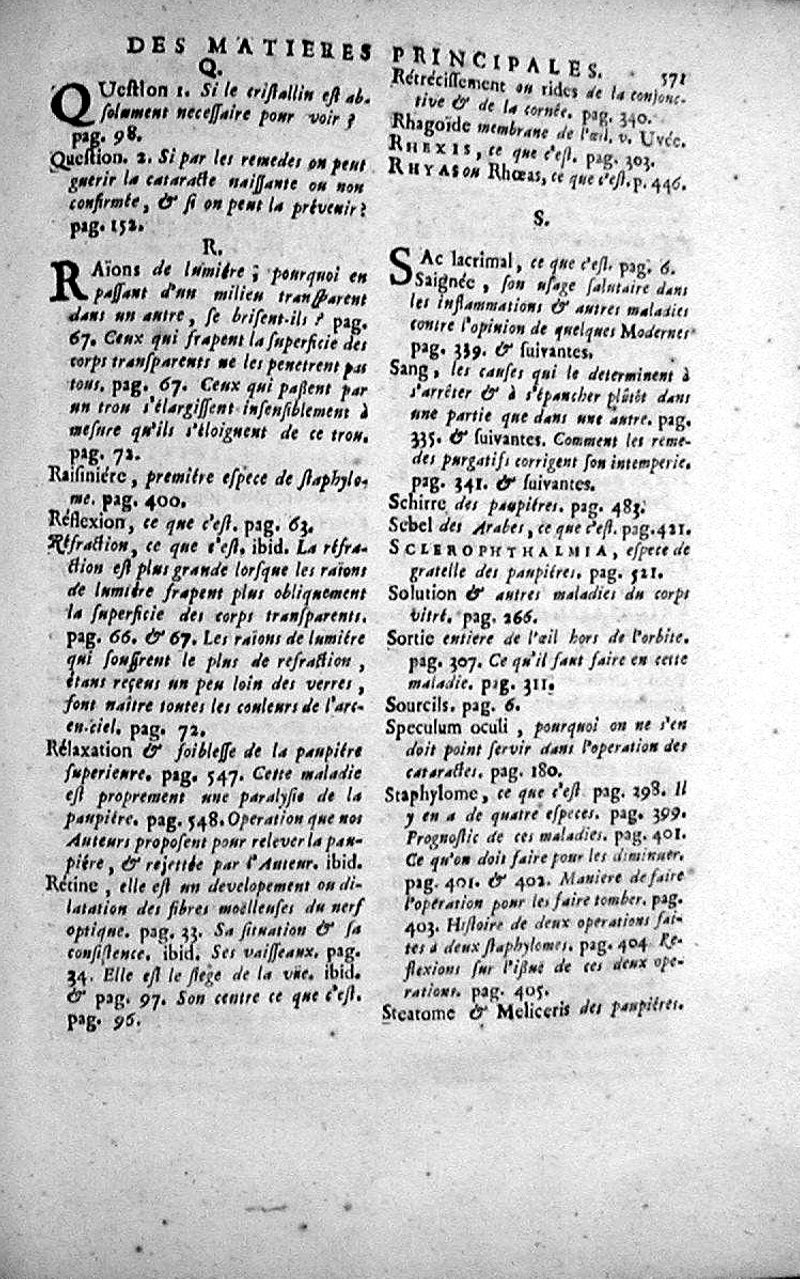 DES MATIERES PRINCIPALES. 571
Q.
QUestion 1. Si le cristallin est ab-
solument necessaire pour voir ?
pag. 98.
Question. 2. Si par les remedes on peut
guerir la cataracte naissante ou non
confirmée, & si on peut la prévenir ?
pag. 152.
R.
RAïons de lumiére ; pourquoi en
passant d'un milieu transparent
dans un autre, se brisent-ils ? pag.
67. Ceux qui frapent la superficie des
corps transparents ne les penetrent pas
tous. pag. 67. Ceux qui passent par
un trou s'élargissent insensiblement à
mesure qu'ils s'éloignent de ce trou.
pag. 72.
Raisiniére, premiére espece de staphylo-
me. pag. 400.
Réflexion, ce que c'est. pag. 63.
Réfraction, ce que c'est. ibid. La réfra-
ction est plus grande lorsque les raïons
de lumiére frapent plus obliquement
la superficie des corps transparents.
pag. 66. & 67. Les raïons de lumiére
qui souffrent le plus de refraction,
étans reçeus un peu loin des verres,
font naître toutes les couleurs de l'arc-
en-ciel. pag. 72.
Rélaxation & foiblesse de la paupiére
superieure. pag. 547. Cette maladie
est proprement une paralysie de la
paupiére. pag. 548. Operation que nos
Auteurs proposent pour relever la pau-
piére, & rejettée par l'Auteur. ibid.
Rétine, elle est un developement ou di-
latation des fibres moëlleuses du nerf
optique. pag. 33. Sa situation & sa
consistence. ibid. Ses vaisseaux. pag.
34. Elle est le siege de la vûe. ibid.
& pag. 97. Son centre ce que c'est.
pag. 96.
Rétrécissement ou rides de la conjonc-
tive & de la cornée. pag. 340.
Rhagoïde membrane de l'œil. v. Uvée.
RHEXIS, ce que c'est. pag. 303.
RHYAS ou Rhœas, ce que c'est. p. 446.
S.
SAc lacrimal, ce que c'est. pag. 6.
Saignée, son usage salutaire dans
les inflammations & autres maladies
contre l'opinion de quelques Modernes
pag. 339. & suivantes.
Sang, les causes qui le determinent à
s'arrêter & à s'épancher plûtôt dans
une partie que dans une autre. pag.
335. & suivantes. Comment les reme-
des purgatifs corrigent son intemperie.
pag. 341. & suivantes.
Schirre des paupiéres. pag. 483.
Sebel des Arabes, ce que c'est. pag. 421.
SCLEROPHTHALMIA, espece de
gratelle des paupiéres. pag. 521.
Solution & autres maladies du corps
vitré. pag. 266.
Sortie entiere de l'œil hors de l'orbite.
pag. 307. Ce qu'il faut faire en cette
maladie. pag. 311.
Sourcils. pag. 6.
Speculum oculi, pourquoi on ne s'en
doit point servir dans l'operation des
cataractes. pag. 180.
Staphylome, ce que c'est pag. 298. Il
y en a de quatre especes. pag. 399.
Prognostic de ces maladies. pag. 401.
Ce qu'on doit faire pour les diminuer.
pag. 401. & 402. Maniere de faire
l'opération pour les faire tomber. pag.
403. Histoire de deux operations fai-
tes à deux staphylomes. pag. 404 Re-
flexions sur l'issue de ces deux ope-
rations. pag. 405.
Steatome & Meliceris des paupiéres.